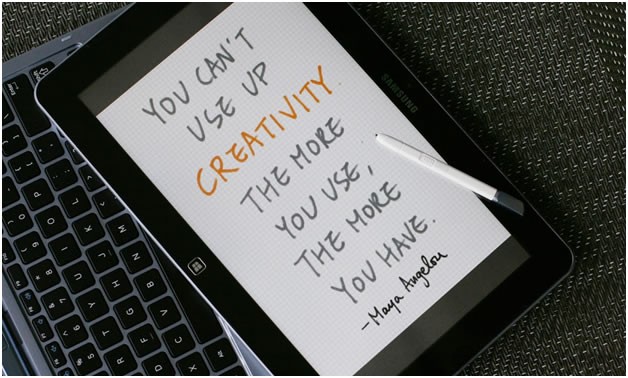 YOU CAN'T
USE UP
CREATIVITY.
THE MORE
YOU USE,
THE MORE
YOU HAVE.
—Maya Angelou
SAMSUNG